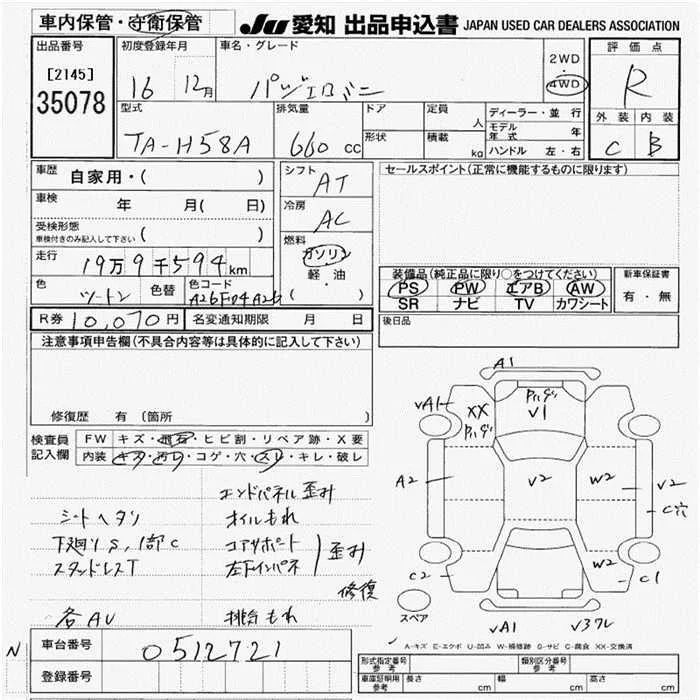 車内保管・守衛保管
JU 愛知 出品申込書 JAPAN USED CAR DEALERS ASSOCIATION
出品番号
[2145]
35078
初度登録年月
16 12月
車名・グレード
パジェロミニ
2WD
・
4WD
評価点
R
外装 内装
C B
型式
TA-H58A
排気量
660 cc
ドア
形状
定員
人
積載
kg
ディーラー・並行
モデル年式 年
ハンドル 左・右
車歴
自家用・( )
車検
年 月( 日)
受検形態
車検付きのみ記入して下さい ( )
走行
19万9千594km
色
ツートン 色替
色コード
A26F04A26 ( )
シフト
AT
冷房
AC
燃料
ガソリン
軽・油
セールスポイント(正常に機能するものに限ります)
装備品(純正品に限り○をつけてください)
PS PW エアB AW
SR ナビ TV カワシート
新車保証書
有・無
R券 10,070円 名変通知期限 月 日
後日品
注意事項申告欄(不具合内容等は具体的に記入して下さい)
修復歴 有(箇所 )
検査員記入欄
FW キズ・飛石・ヒビ割・リペア跡・X要
内装 キズ・汚レ・コゲ・穴・スレ・キレ・破レ
エンドパネル歪み
シートヘタリ オイルもれ
下廻りS,1部C コアサポート
スタッドレスT 左下インパネ 歪み
修復
各AU 排気もれ
A1
VA1
XX
パハダ
パハダ
V1
A2
V2
W2
V2
C穴
W2
C2
C1
スペア
VA1
V3フレ
A-キズ E-エクボ U-凹み W-補修跡 S-サビ C-腐食 XX-交換済
N
車台番号
0512721
登録番号
形式指定番号 参考
類別区分番号 参考
車庫証明用 参考
長さ cm
幅 cm
高さ cm